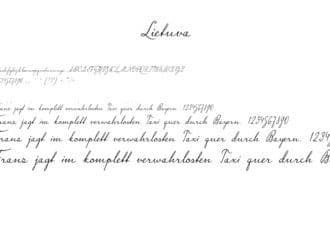 Lietuva
ABCDEFGHIJKLMNOPQRSTUVWXYZ
Franz jagt im komplett verwahrlosten Taxi quer durch Bayern. 1234567890
Franz jagt im komplett verwahrlosten Taxi quer durch Bayern. 1234567890
Franz jagt im komplett verwahrlosten Taxi quer durch Bayern. 1234
Franz jagt im komplett verwahrlosten Taxi quer durch B